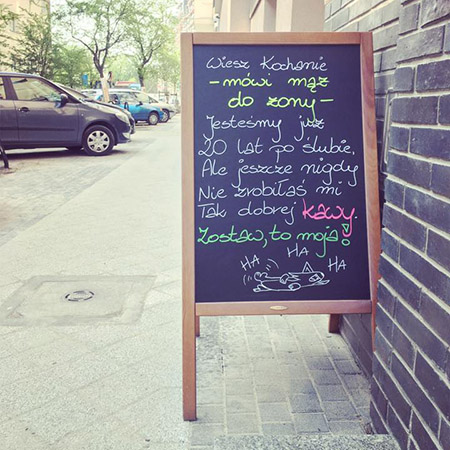 Wiesz Kochanie
- mówi mąż
do żony -
Jesteśmy już
20 lat po ślubie,
Ale jeszcze nigdy
Nie zrobiłaś mi
Tak dobrej kawy.
Zostaw, to moja!
HA HA HA